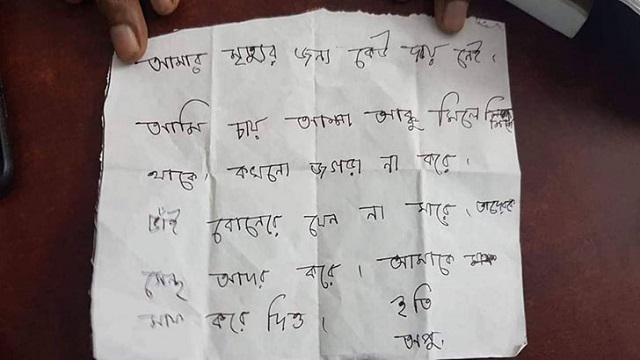 আমার মৃত্যুর জন্য কেউ দায় নেই।
আমি চায় আম্মা আব্বু মিলে মিশে
থাকে। কখনো জগরা না করে।
ভাই বোনেরে যেন না মারে। তাদেরকে
স্নেহ আদর করে। আমাকে
মাপ করে দিও।
ইতি
অপু।